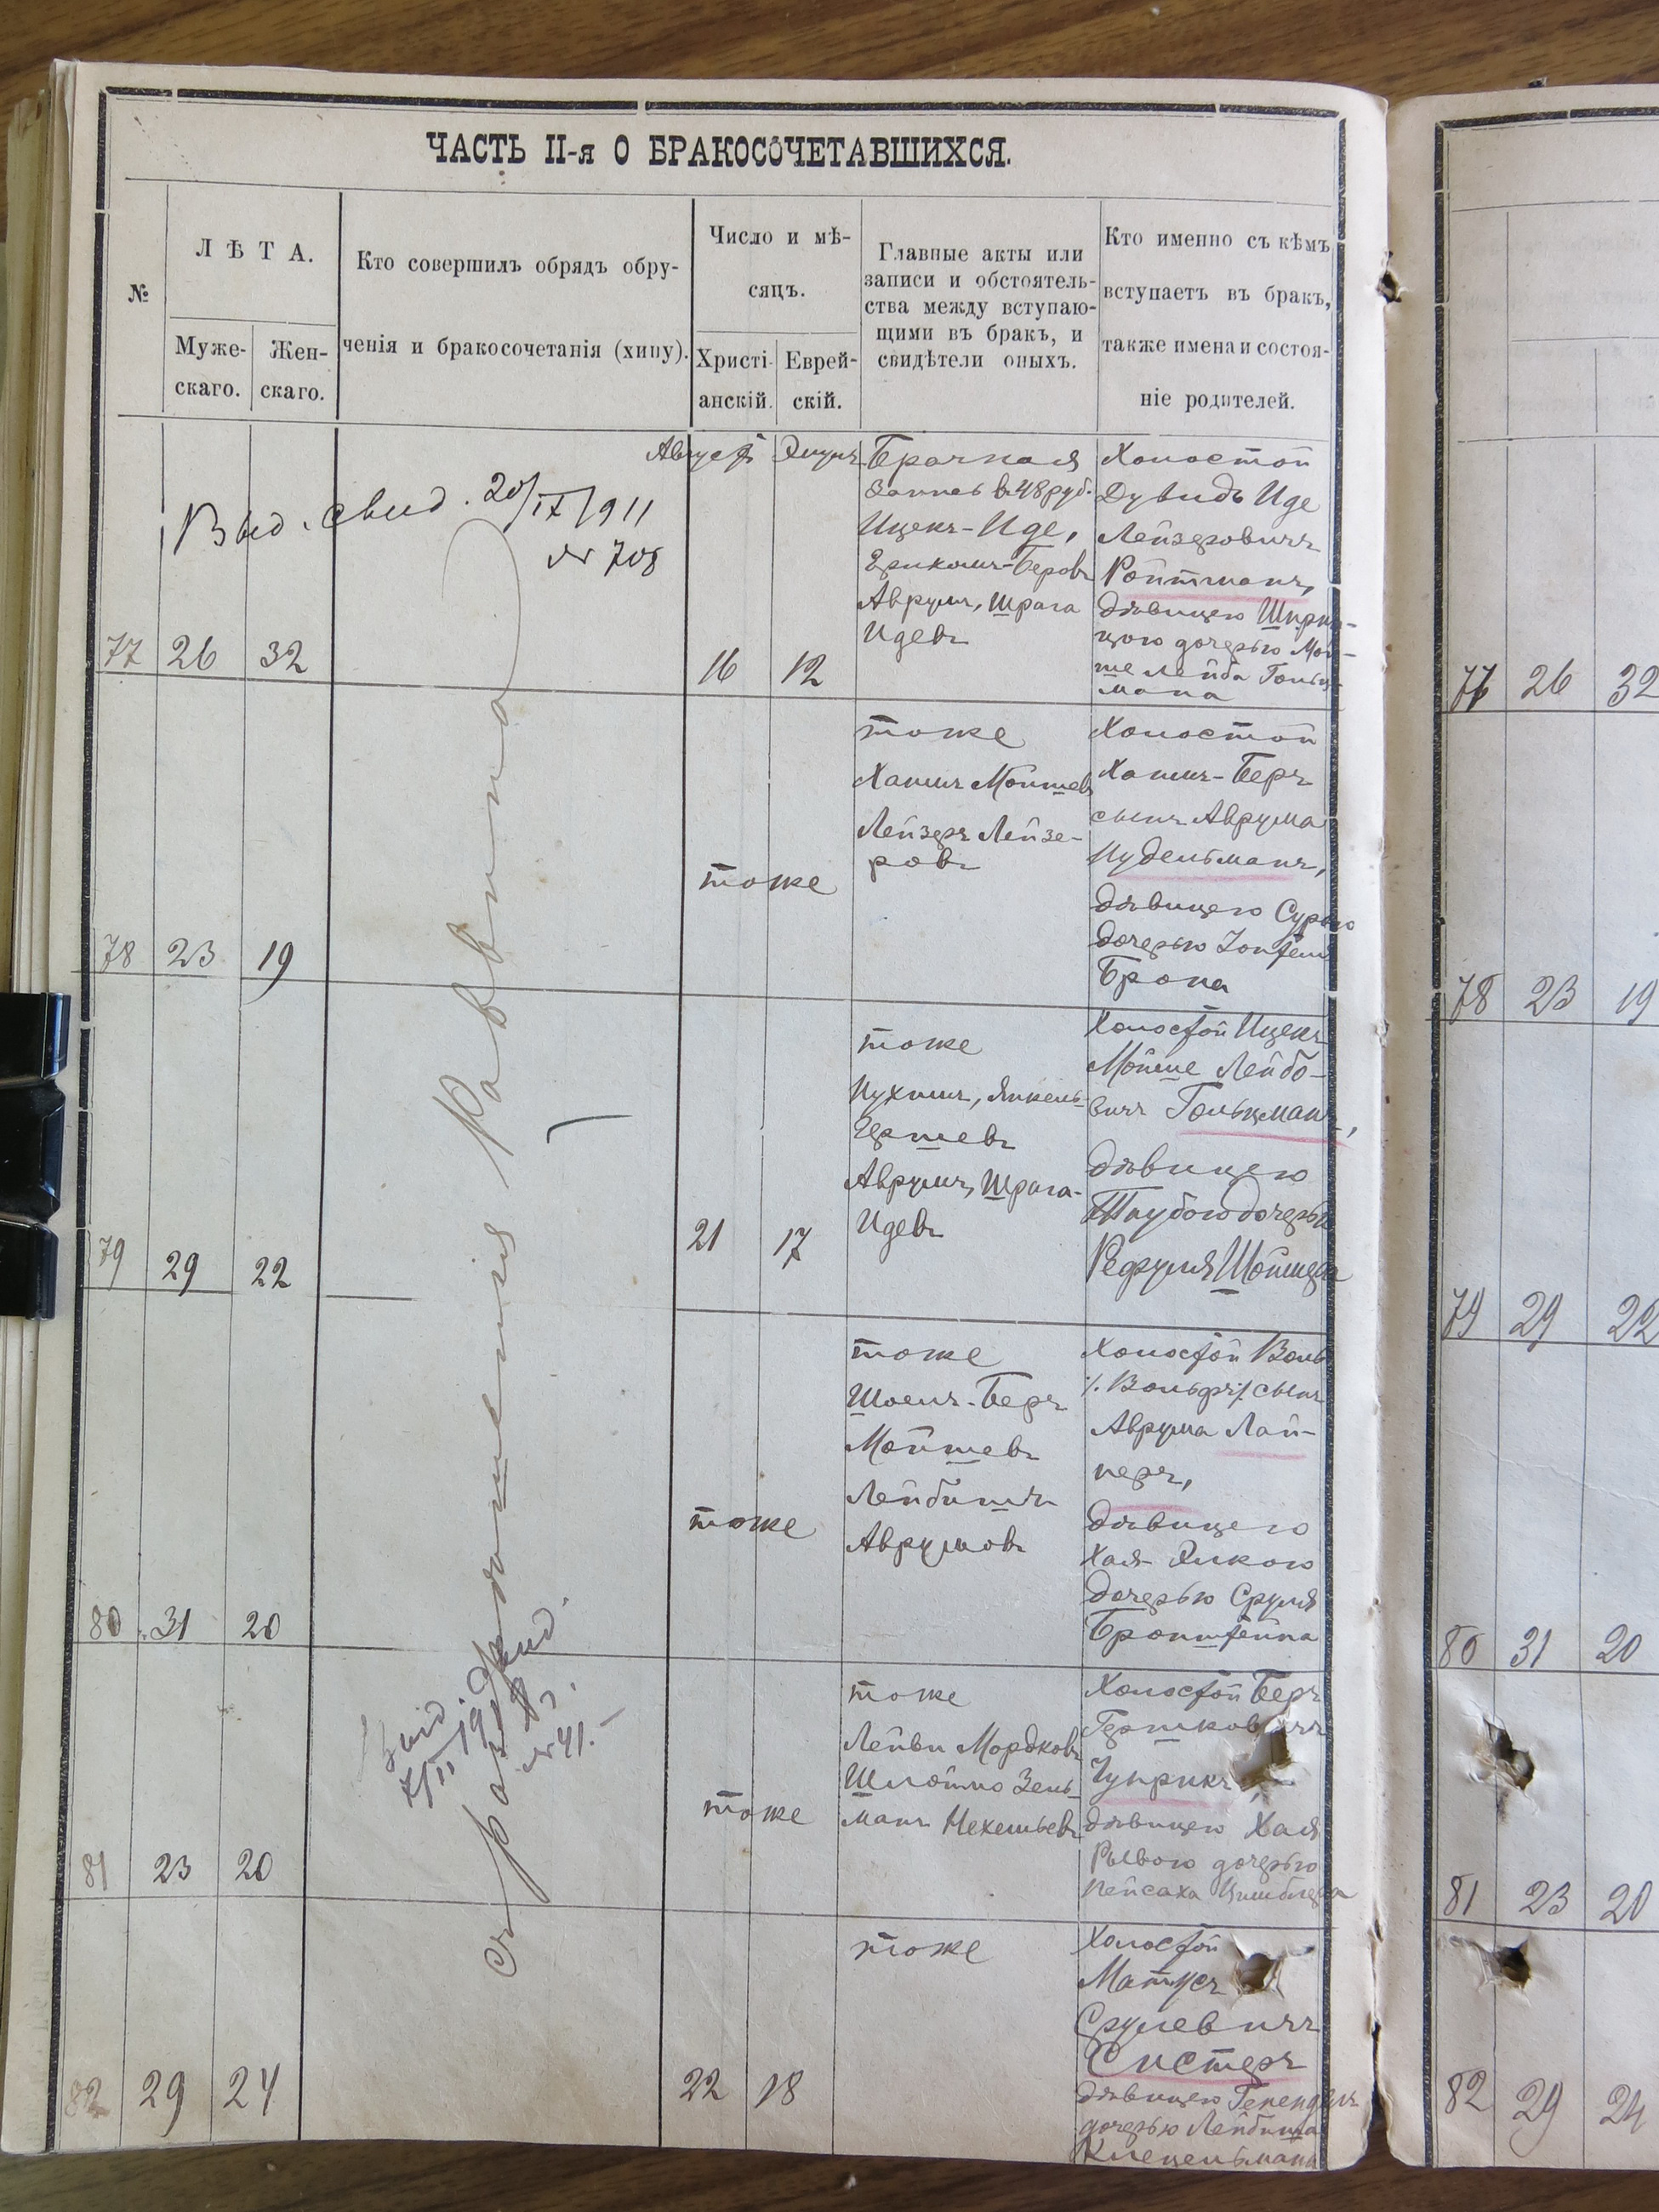 ЧАСТЬ II-я О БРАКОСОЧЕТАВШИХСЯ.
№
ЛѢТА.
Муже-
скаго.
Жен-
скаго.
Кто совершилъ обрядъ обру-
ченія и бракосочетанія (хипу).
Число и мѣ-
сяцъ.
Христі-
анскій.
Еврей-
скій.
Главные акты или
записи и обстоятель-
ства между вступаю-
щими въ бракъ, и
свидѣтели оныхъ.
Кто именно съ кѣмъ
вступаетъ въ бракъ,
также имена и состоя-
ніе родителей.
Выд. свид. 20/IX/911
№ 708
съ разрѣшенія Раввина
77 26 32
Августъ
16 12
Брачная
запись въ 48 руб.
Ицекъ-Иде,
Аврумъ, Шрага
Идевы
Холостой
Дувидъ Иде
Лейзеровичъ
Ройтманъ,
дѣвицею
цою дочерью Мой-
ше Лейба Гольц-
мана
78 23 19
тоже
тоже
Хаимъ Мойшевъ
Лейзеръ Лейзе-
ровъ
Холостой
Хаимъ-Беръ
сынъ Аврума
Нудельманъ,
дѣвицею Сурою
дочерью
Брона
79 29 22
21 17
тоже
Нухимъ, Янкель
Гершевы
Аврумъ, Шрага-
Идевы
Холостой Ицекъ
Мойше Лейбо-
вичъ Гольцманъ,
дѣвицею
Таубою дочерью
80 31 20
тоже
тоже
Шоелъ-Беръ
Мойшевъ
Лейбишъ
Аврумовъ
Холостой Воль
/. Вольфъ ./ сынъ
Аврума Лай-
неръ,
дѣвицею
Хая-Элкою
дочерью Сруля
Бронштейна
№ 41.
81 23 20
тоже
тоже
Лейви Мордковъ
Шлойма Зель-
манъ
Холостой Беръ
Гершковичъ
Чуприкъ
дѣвицею Хая
Рывою дочерью
Пейсаха
82 29 24
22 18
тоже
Холостой
Матусъ
Срулевичъ
Систеръ
дѣвицею
дочерью Лейбиша
77 26 32
78 23 19
79 29 22
80 31 20
81 23 20
82 29 24